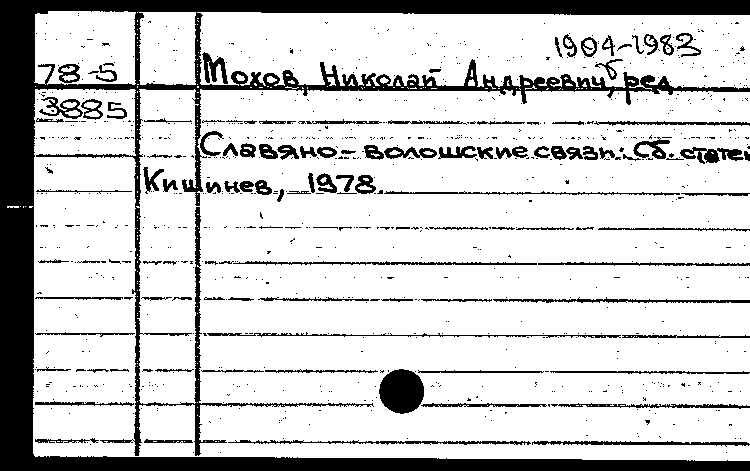 1904-1983
78-5 Мохов, Николай Андреевич, ред.
3885
Славяно-волошские связи: Сб. статей
Кишинев, 1978.